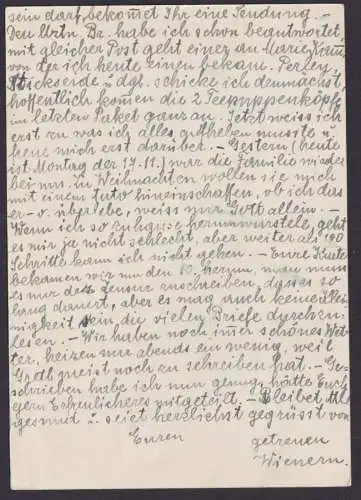 sein darf, bekommt Ihr eine Sendung. –
Den Urtn. Br. habe ich schon beantwortet,
mit gleicher Post geht einer an Marie
von der ich heute einen bekam. Perlen,
Stickseide u. dgl. schicke ich demnächst,
hoffentlich kommen die 2 Teepuppenköpfe
im letzten Paket ganz an. Jetzt weiss ich
erst zu was ich alles aufheben musste u.
freue mich erst darüber. – Gestern (heute
ist Montag der 17.11.) war die Familie wieder
bei uns. Zu Weihnachten wollen sie mich
mit einem Auto hineinschaffen, ob ich das
er- o. überlebe, weiss nur Gott allein. –
Wenn ich so zuhause herumwurstele, geht
es mir ja nicht schlecht, aber weiter als 100
Schritte kann ich nicht gehen. – Eure Karte
bekamen wir um den 10. herum, man muss
es nur der Zensur zuschreiben, dass es so
lang dauert, aber es mag auch keine Klei-
nigkeit sein die vielen Briefe durchzu-
lesen. – Wir haben noch immer schönes Wet-
ter, heizen nur abends ein wenig, weil
Gretl meist noch zu schreiben hat. – Ge-
schrieben habe ich nun genug, hätte Euch
gern Erfreulicheres mitgeteilt. – Bleibet alle
gesund u. seiet herzlichst gegrüsst von
Euren getreuen
Wienern.